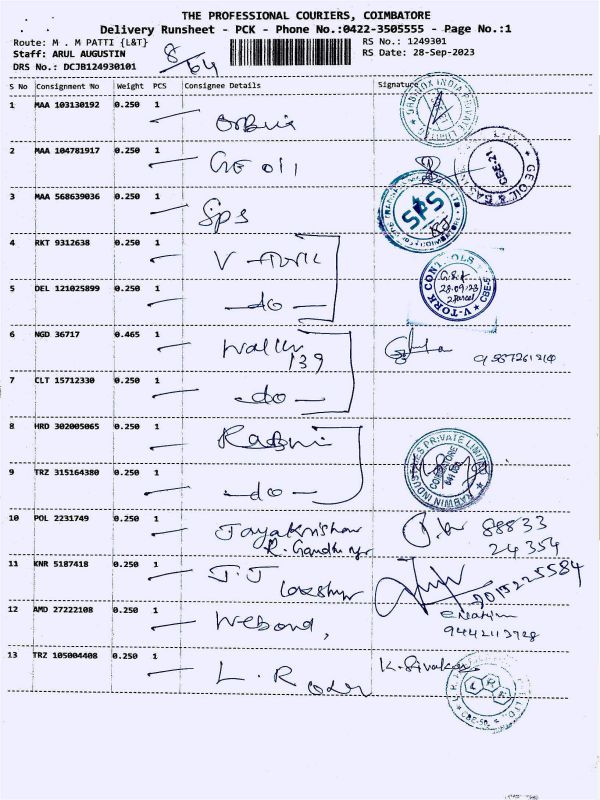 THE PROFESSIONAL COURIERS, COIMBATORE
Delivery Runsheet - PCK - Phone No.:0422-3505555 - Page No.:1
Route: M . M PATTI {L&T}
RS No.: 1249301
Staff: ARUL AUGUSTIN
RS Date: 28-Sep-2023
DRS No.: DCJB124930101
8/64
S No Consignment No Weight PCS Consignee Details Signature
1 MAA 103130192 0.250 1
2 MAA 104781917 0.250 1 GE oil
GE OIL & GAS CBE-21
3 MAA 568639036 0.250 1 Sps
SPS
4 RKT 9312638 0.250 1 V-
5 DEL 121025899 0.250 1 -do-
V-TORK CONTROLS CBE-5
G.S.K
28.09.23
2 Parcel
6 NGD 36717 0.465 1
139
7 CLT 15712330 0.250 1 -do-
8 HRD 302005065 0.250 1
RABWIN INDUSTRIES PRIVATE LIMITED
COIMBATORE
9 TRZ 315164380 0.250 1 -do-
10 POL 2231749 0.250 1 Jayakrishnan
R. Gandhi ngr
88833
24354
11 KNR 5187418 0.250 1 J.J
9015225584
12 AMD 27222108 0.250 1
9442113928
13 TRZ 105004408 0.250 1 L. R K. Sivakar
CBE-50